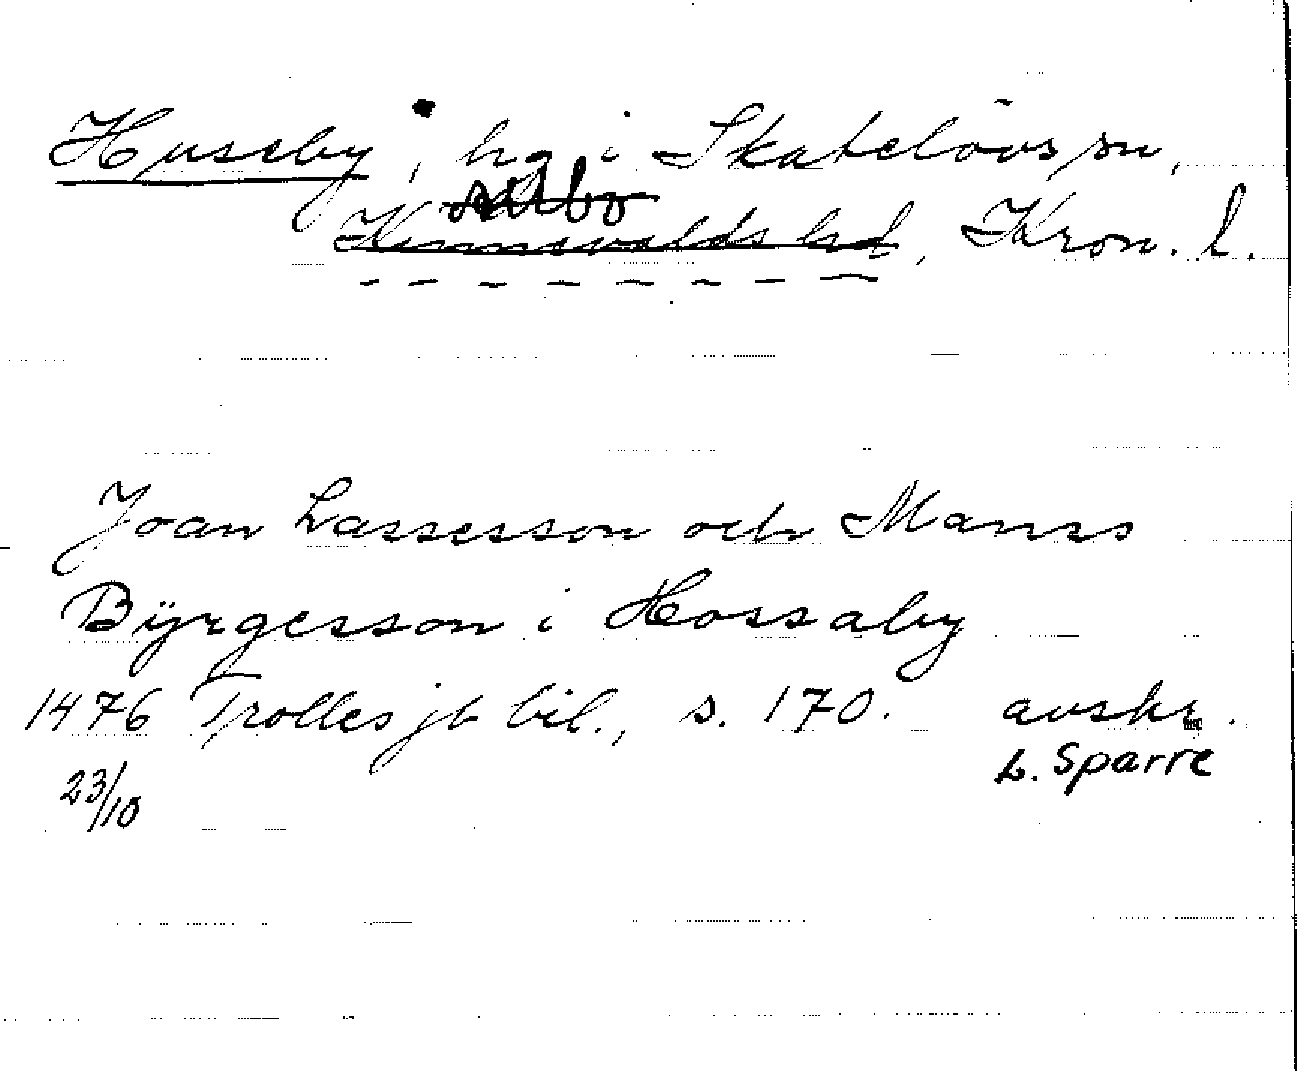 Huseby, hg i Skatelövs sn,
Allbo
Kinnevalds hd, Kron. l.
Joan Lassesson och Manss
Bÿrgesson i Hossaby
1476 Trolles jb bil., s. 170. avskr.
23/10 L. Sparre